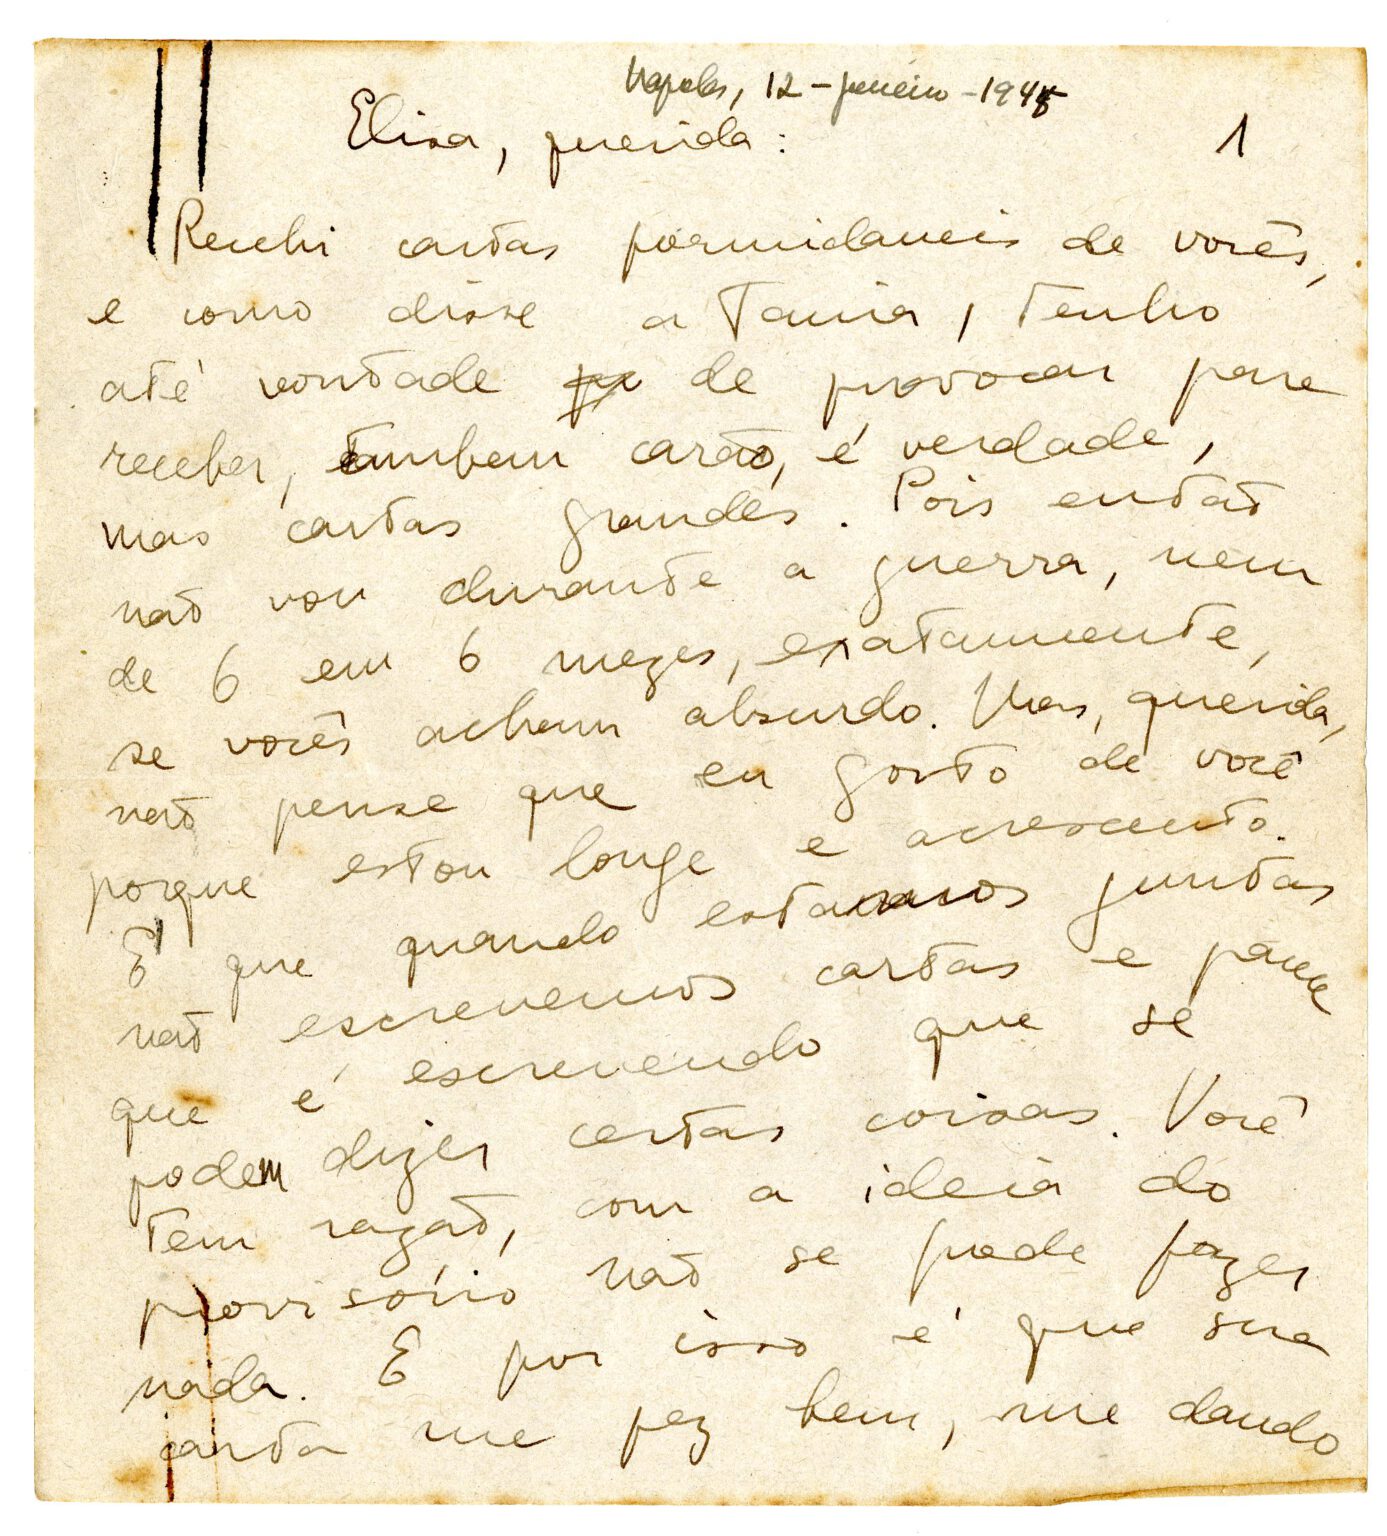 Napoles, 12 - janeiro - 1945
Elisa, querida:
1
Recebi cartas formidaveis de vocês,
e como disse a Tania, tenho
até vontade de provocar para
receber, tambem carão, é verdade,
mas cartas grandes. Pois então
não vou durante a guerra, nem
de 6 em 6 mezes, exatamente,
se vocês acham absurdo. Mas, querida,
não pense que eu gosto de você
porque estou longe e acrescento.
É que quando estamos juntas
não escrevemos cartas e parece
que é escrevendo que se
podem dizer certas coisas. Você
tem razão, com a ideia do
provisório não se pode fazer
nada. E por isso é que sua
carta me fez bem, me dando